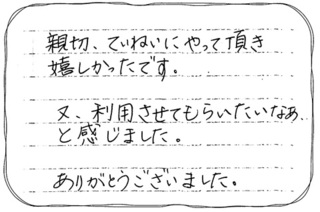 親切、ていねいにやって頂き
嬉しかったです。
又、利用させてもらいたいなぁ
と感じました。
ありがとうございました。